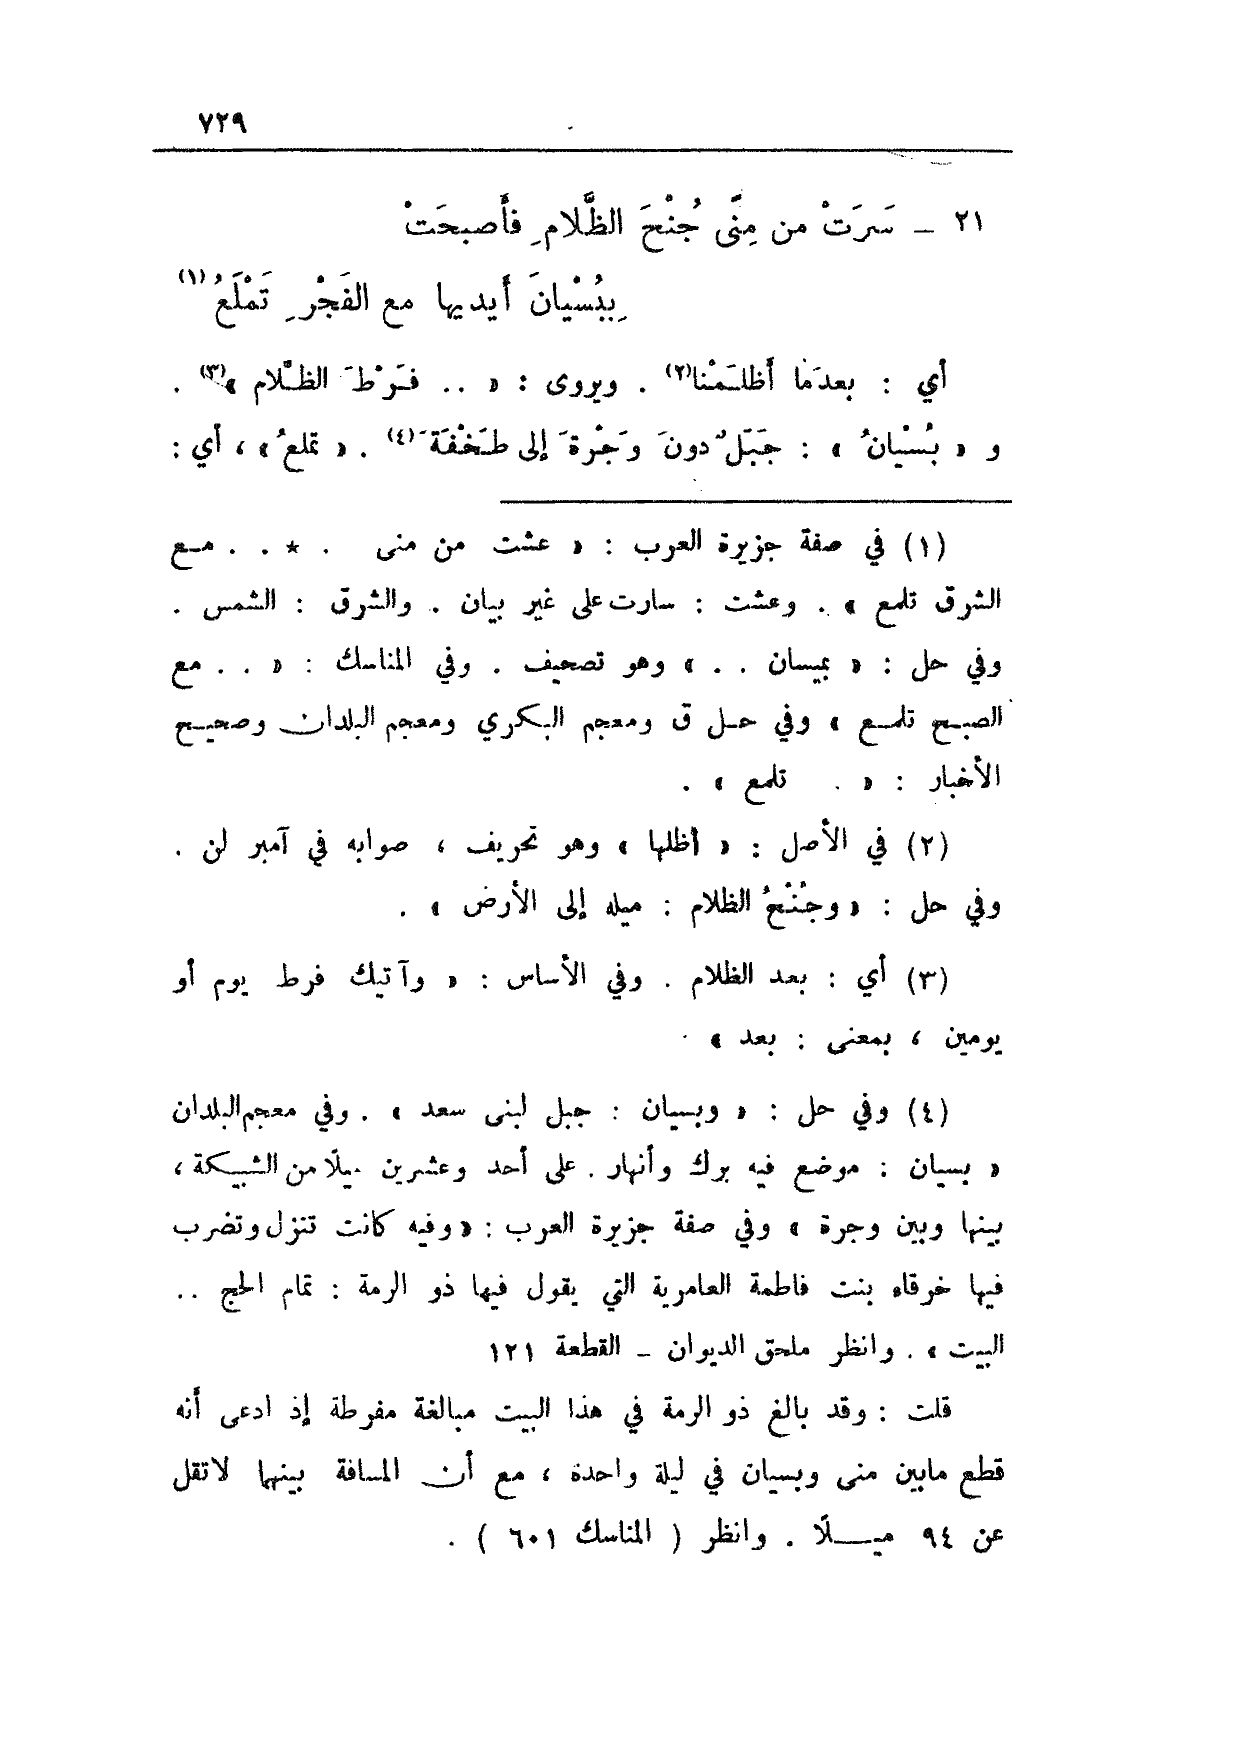 ٧٢٩
٢١ – سَرَتْ من مِنًّى جُنْحَ الظَّلامِ فأَصبحَتْ
بِبُسْيانَ أَيديها مع الفَجْرِ تَمْلَعُ(١)
أي : بعدَما أظلَمْنا(٢) . ويروى : « .. فَرْطَ الظَّلام »(٣) .
و « بُسْيانُ » : جَبَلٌ دونَ وَجْرةَ إلى طَخْفَةَ(٤) . « تملعُ » ، أي :
(١) في صفة جزيرة العرب : « عشت من منى . * . . مع
الشرق تلمع » . وعشت : سارت على غير بيان . والشرق : الشمس .
وفي حل : « بميسان . . » وهو تصحيف . وفي المناسك : « . . مع
الصبح تلمع » وفي حل ق ومعجم البكري ومعجم البلدان وصحيح
الأخبار : « . تلمع » .
(٢) في الأصل : « أظلها » وهو تحريف ، صوابه في آمبر لن .
وفي حل : « وجُنْحُ الظلام : ميله إلى الأرض » .
(٣) أي : بعد الظلام . وفي الأساس : « وآتيك فرط يوم أو
يومين ، بمعنى : بعد »
(٤) وفي حل : « وبسيان : جبل لبني سعد » . وفي معجم البلدان
« بسيان : موضع فيه برك وأنهار . على أحد وعشرين ميلًا من الشبيكة ،
بينها وبين وجرة » وفي صفة جزيرة العرب : « وفيه كانت تنزل وتضرب
فيها خرقاء بنت فاطمة العامرية التي يقول فيها ذو الرمة : تمام الحج ..
البيت » . وانظر ملحق الديوان – القطعة ١٢١
قلت : وقد بالغ ذو الرمة في هذا البيت مبالغة مفرطة إذ ادعى أنه
قطع مابين منى وبسيان في ليلة واحدة ، مع أن المسافة بينهما لاتقل
عن ٩٤ ميلًا . وانظر ( المناسك ٦٠١ ) .